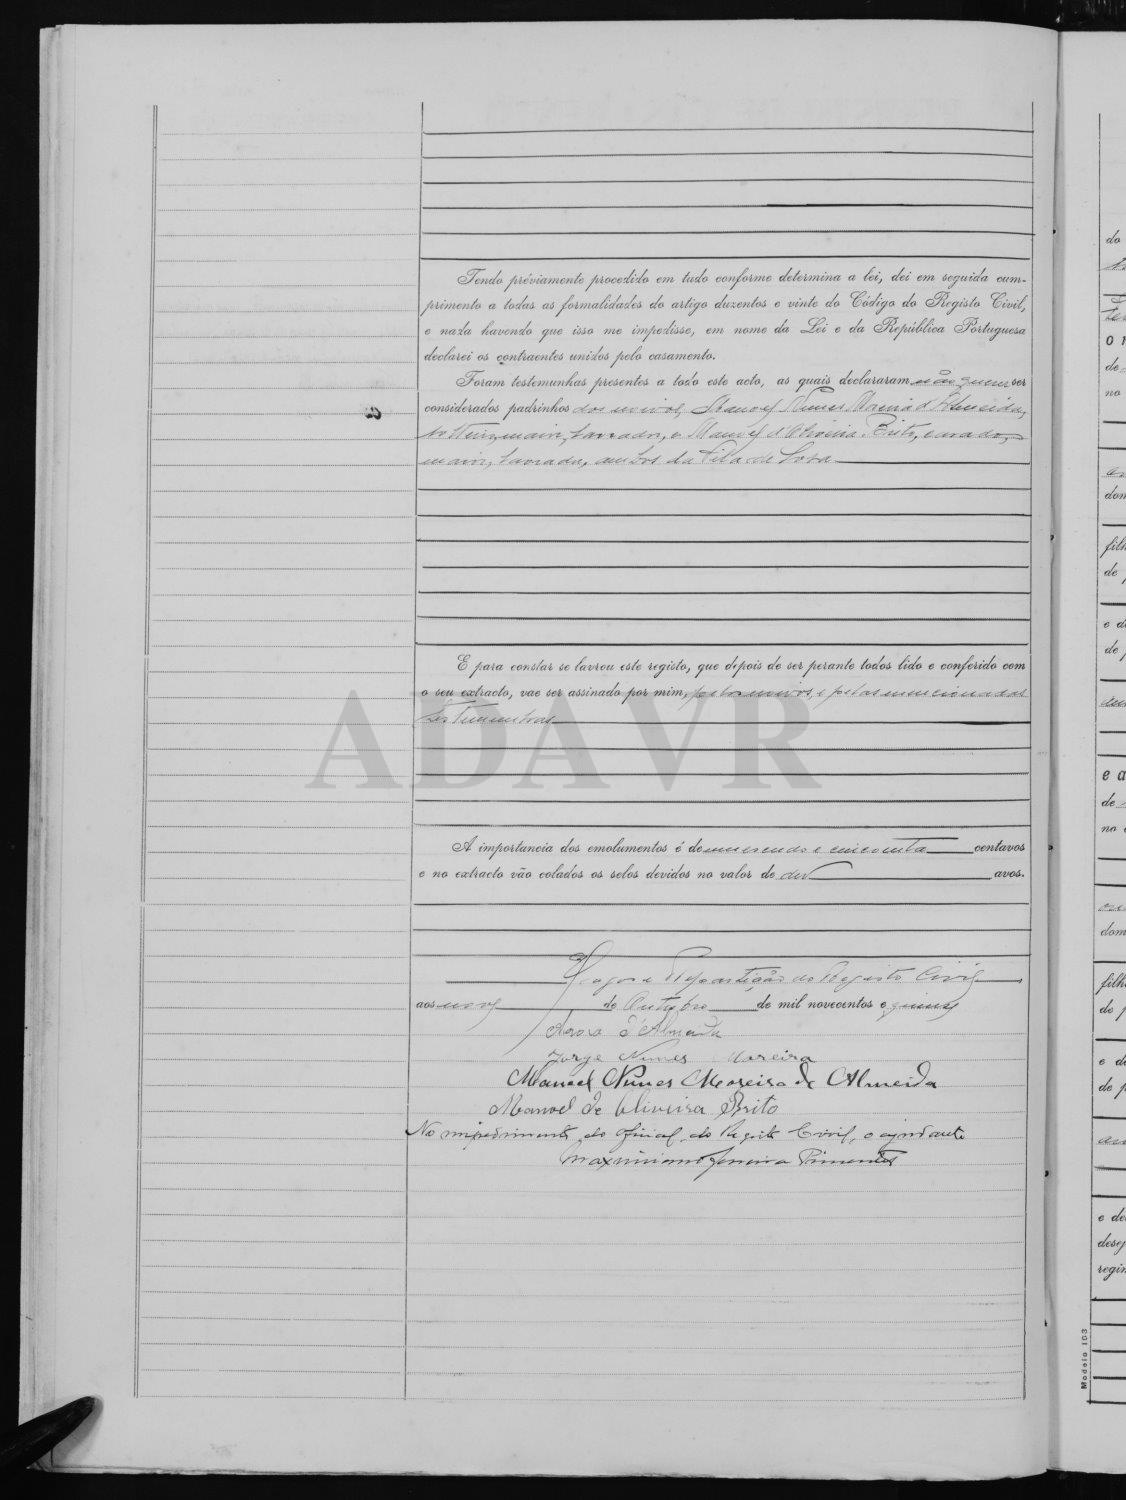 Tendo préviamente procedido em tudo conforme determina a lei, dei em seguida cum-
primento a todas as formalidades do artigo duzentos e vinte do Código do Registo Civil,
e nada havendo que isso me impedisse, em nome da Lei e da República Portuguesa
declarei os contraentes unidos pelo casamento.
Foram testemunhas presentes a todo este acto, as quais declararam não querer ser
considerados padrinhos dos noivos, Manoel Nunes Moreira d'Almeida,
maior, lavrador, e Manoel d'Oliveira Brito, casado,
maior, lavrador, ambos da vila de
E para constar se lavrou este registo, que depois de ser perante todos lido e conferido com
o seu extracto, vae ser assinado por mim, pelos noivos, e pelas mencionadas
testemunhas
ADAVR
A importancia dos emolumentos é de um escudo e cincoenta centavos
e no extracto vão colados os selos devidos no valor de dez avos.
Repartição do Registo Civil
aos nove de Outubro de mil novecentos e quinze
d'Almeida
Jorge Nunes Moreira
Manoel Nunes Moreira de Almeida
Manoel de Oliveira Brito
No impedimento do oficial do Registo Civil, o ajudante
Maximiano Ferreira Pimentel
do
o n
de
no
dom
filh
de p
e d
de p
e a
de
no
dom
filh
de p
e d
de p
e de
desej
regin
Modelo 103